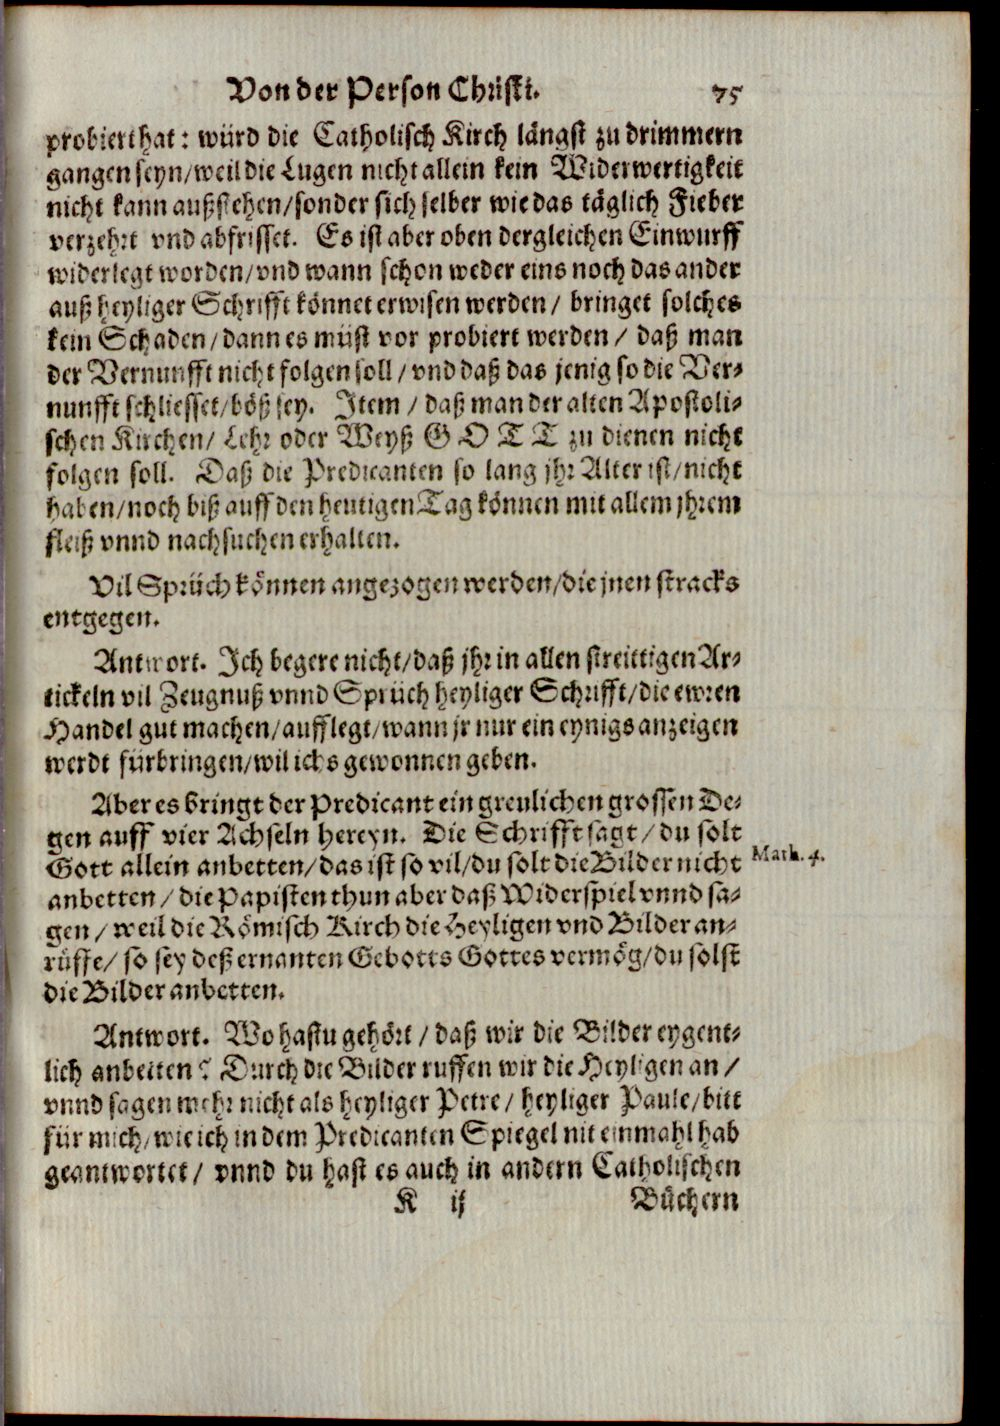 Von der Person Christi. 75
probiert hat: würd die Catholisch Kirch längst zu drimmern
gangen seyn/weil die Lugen nicht allein kein Widerwertigkeit
nicht kann außstehen/sonder sich selber wie das täglich Fieber
verzehrt vnd abfrisset. Es ist aber oben dergleichen Einwurff
widerlegt worden/vnd wann schon weder eins noch das ander
auß heyliger Schrifft könnet erwisen werden/ bringet solches
kein Schaden/dann es müst vor probiert werden/ daß man
der Vernunfft nicht folgen soll/vnd daß das jenig so die Ver-
nunfft schliesset/böß sey. Item/ daß man der alten Apostoli-
schen Kirchen/ Lehr oder Weyß GOTT zu dienen nicht
folgen soll. Daß die Predicanten so lang jhr Alter ist/nicht
haben/noch biß auff den heutigen Tag können mit allem jhrem
fleiß vnnd nachsuchen erhalten.
Vil Sprüch können angezogen werden/die jnen stracks
entgegen.
Antwort. Ich begere nicht/daß jhr in allen streittigen Ar-
tickeln vil Zeugnuß vnnd Sprüch heyliger Schrifft/die ewren
Handel gut machen/aufflegt/wann jr nur ein eynigs anzeigen
werdt fürbringen/wil ichs gewonnen geben.
Aber es bringt der Predicant ein greulichen grossen De-
gen auff vier Achseln hereyn. Die Schrifft sagt/ du solt
Gott allein anbetten/das ist so vil/du solt die Bilder nicht
Math. 4.
anbetten/ die Papisten thun aber daß Widerspiel vnnd sa-
gen/ weil die Römisch Kirch die Heyligen vnd Bilder an-
rüffe/ so sey deß ernanten Gebotts Gottes vermög/du solst
die Bilder anbetten.
Antwort. Wo hastu gehört/ daß wir die Bilder eygent-
lich anbetten? Durch die Bilder ruffen wir die Heyligen an/
vnnd sagen mehr nicht als heyliger Petre/ heyliger Paule/bitt
für mich/wie ich in dem Predicanten Spiegel nit einmahl hab
geantwortet/ vnnd du hast es auch in andern Catholischen
K ij Büchern